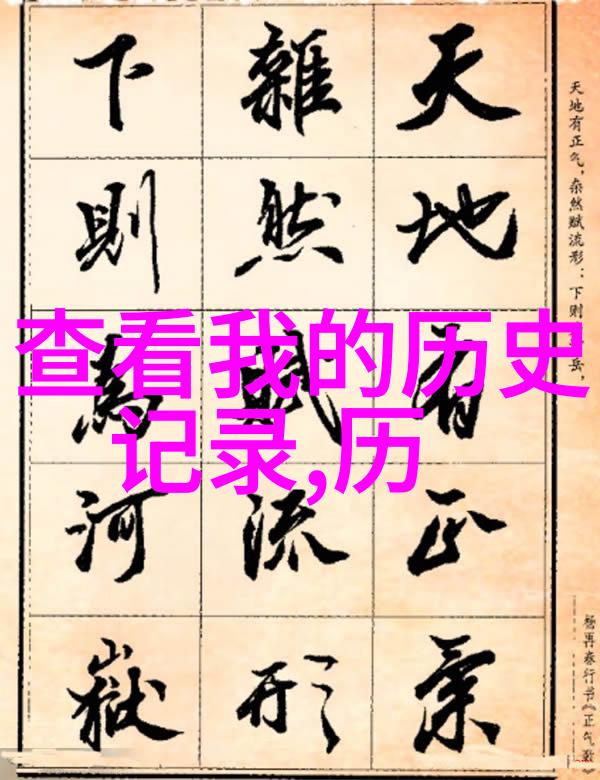 查看我的历史
记录,历
天地有正气，杂然赋流形：下则岳，
杨再春行书《正气歌》
天地有正氣
雜然賦流形
下則為河嶽